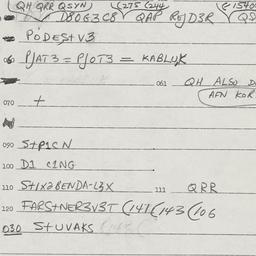 QH QRR QSYN (275 (244 (1540
D8OG3C8 QAP REJD3R QS
PODEST V3
060 PJAT3 = PJOT3 = KABLUK
061 QH ALSO D
AFN KOR
070 +
090 STPICN
100 D1 C1NG
110 ST1X2BENDA-L3X 111 QRR
120 FARSTNER3V3T (141 (143 (106
030 STUVAKS